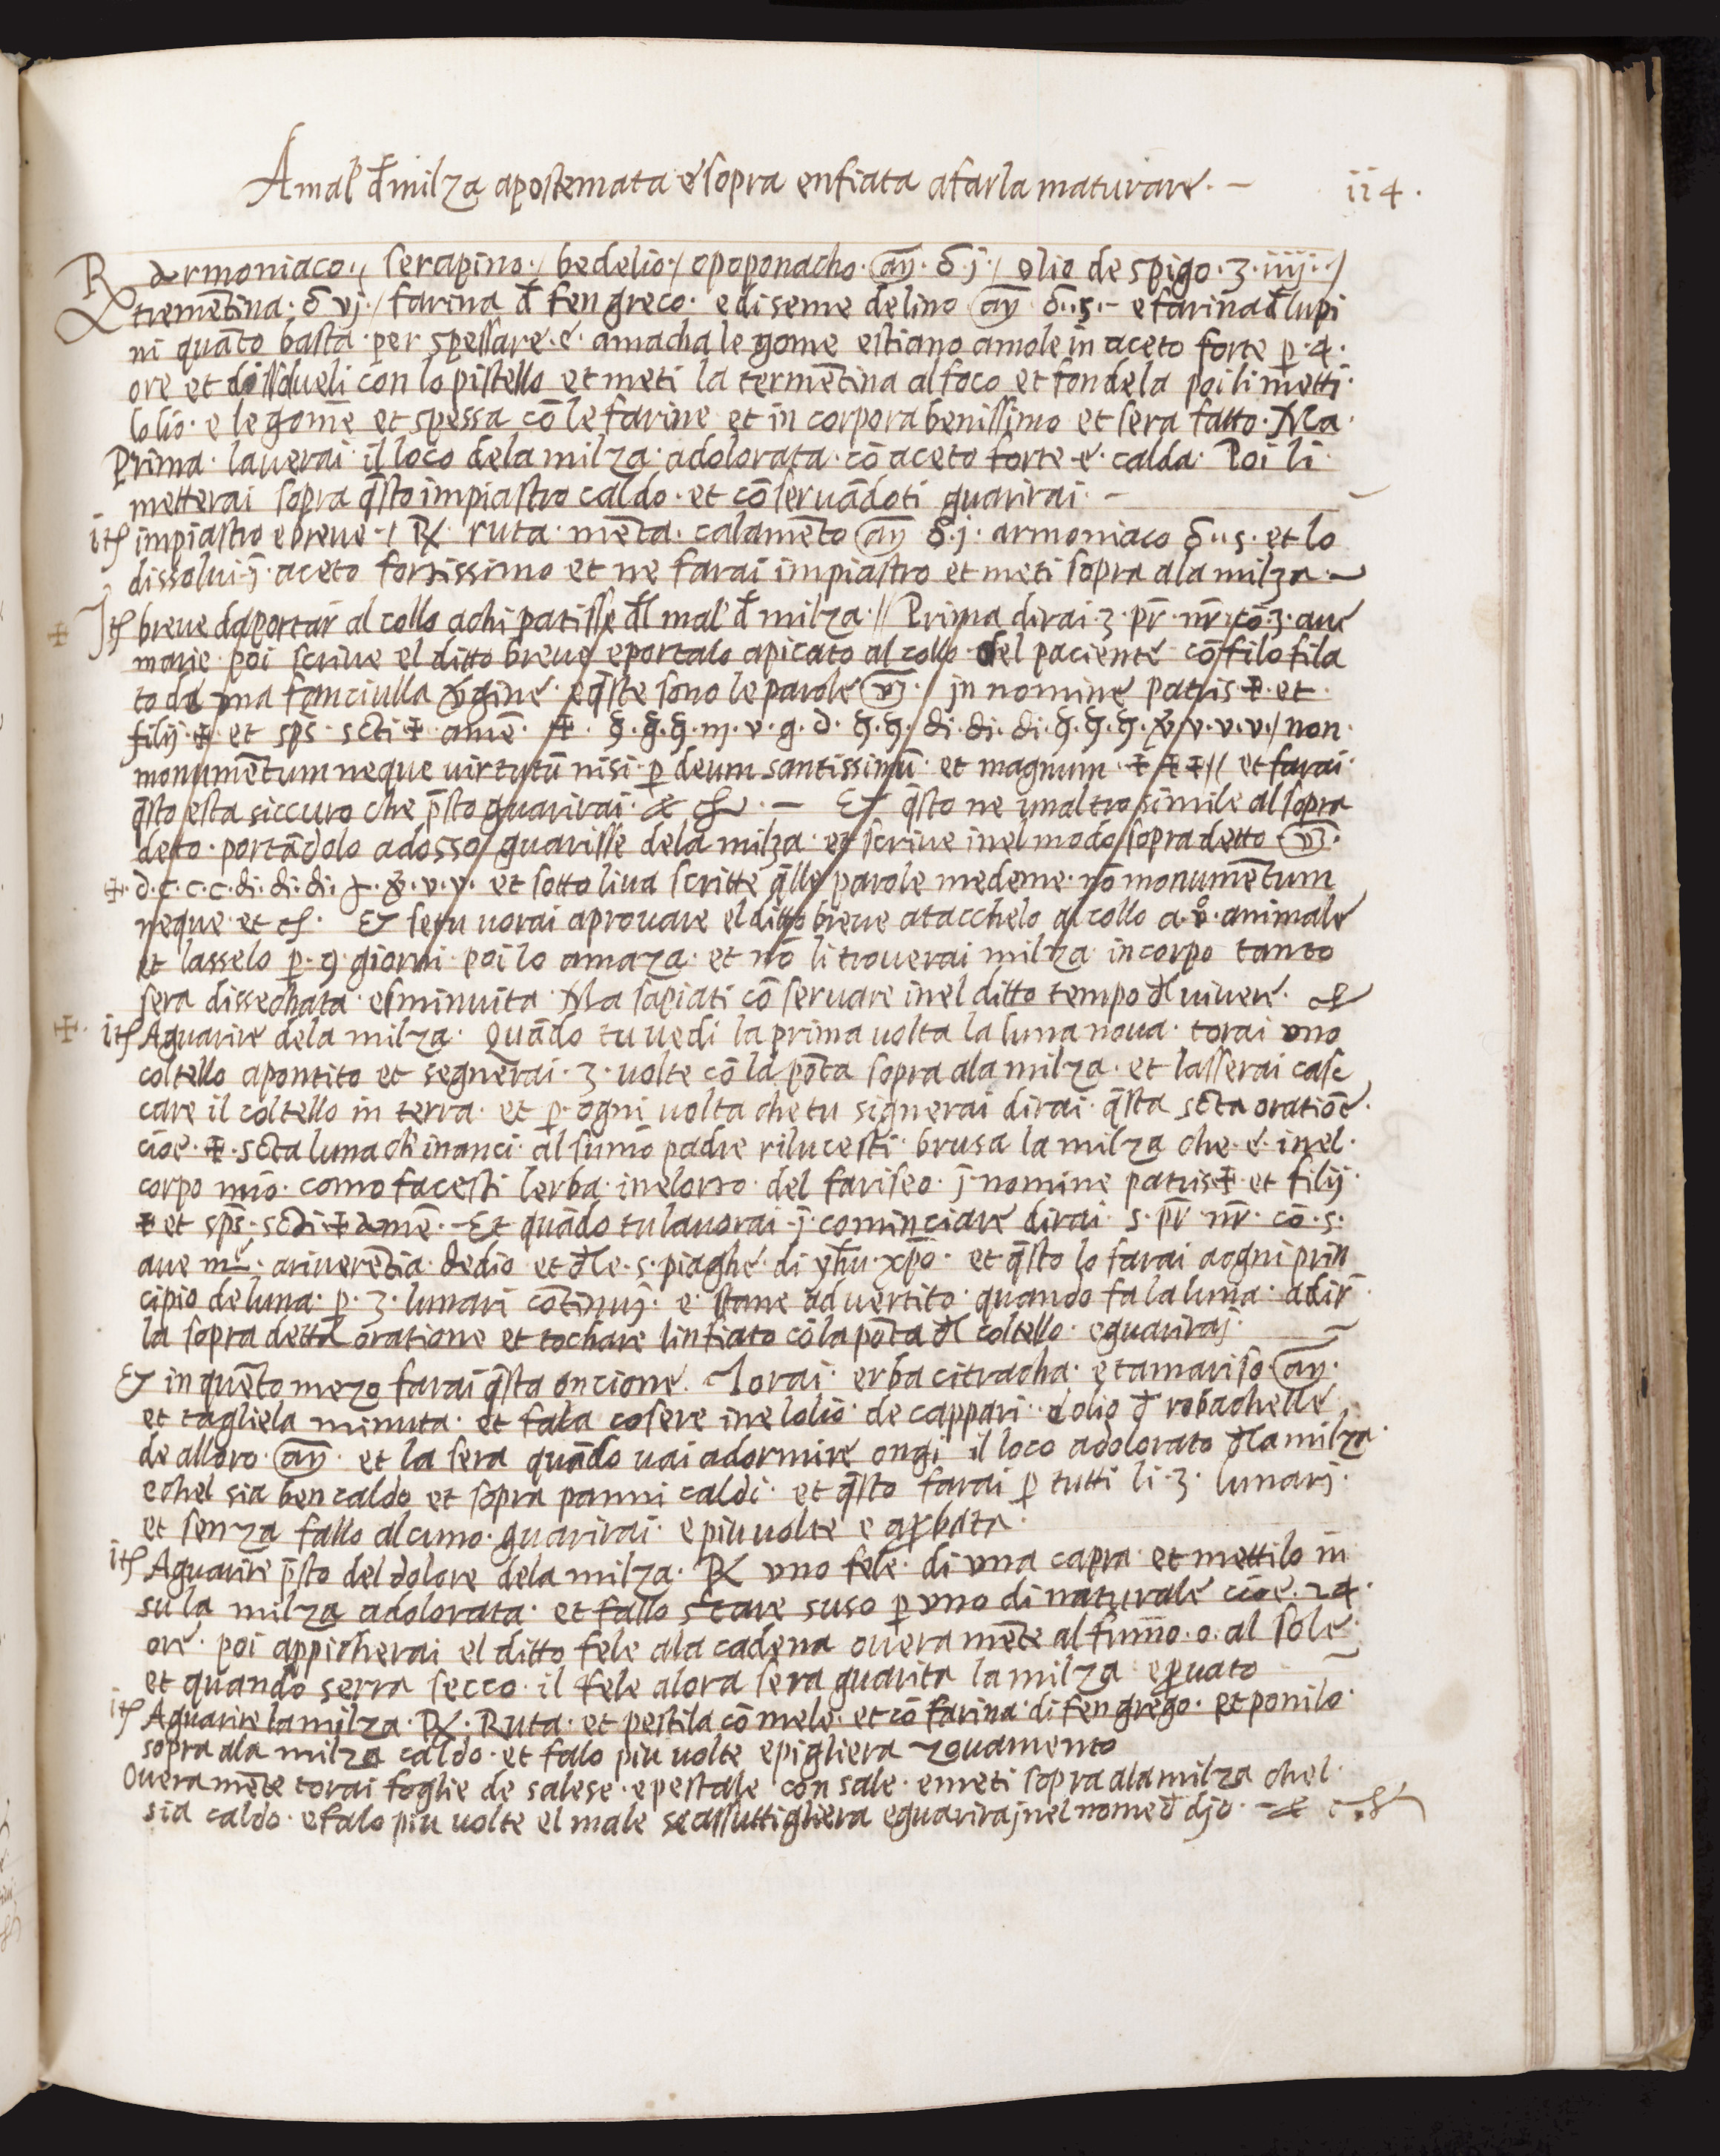 Amal đ milza apostemata e sopra enfiata afarla maturare. –
114.
R armoniaco./ serapino./ bedelio./ opoponacho. aÿ. ō.j./ olio de spigo. 3. iiij../
trementina. ō vj./ farina đ fen greco. e di seme de lino aÿ ō..s.– e farina đ lupi
ni quāto basta. per spessare. e. amacha le gome e stiano amole in aceto forte p̱.4.
ore et dissolueli con lo pistello et meti la termētina al foco et fondela poi li metti.
lolio. e le gome et spessa cō le farine et in corpora benissimo et sera fatto. Ma.
Prima. lauerai. il loco dela milza. adolorata. cō aceto forte. e. calda. Poi li.
metterai sopra q̄sto impiastro caldo. et cōseruādoti guarirai. –
itē impiastro e breue./ ℞ ruta. mēta. calamēto aÿ ō.j. armoniaco ō..s. et lo
dissolui. j̄. aceto fortissimo et ne farai impiastro et meti sopra ala milza. –
✠ Itē breue da portar̄ al collo a chi patisse đl mal' đ milza.// Prima dirai. 3. pr̄. nr̄. cō. 3. aue
marie. poi scriue el ditto breue e portalo apicato al collo del paciente cō filo fila
to da una fanciulla v̄gine. e q̄ste sono le parole v3./ jn nomine patris ✠. et.
filij. ✠ et sp̄s. scti ✠ amē. ✠. ꞩ.ꞩ.ꞩ. m. v. g. d. ꞩ.ꞩ. di. di. di. ꞩ.ꞩ.ꞩ. v. v. v./ non.
monumēntum neque uirtutū nisi. p̱ deum santissimū. et magnum. ✠ ✠ ✠// et farai.
q̄sto e sta siccuro che p̄sto guarirai. & c̄. – Et q̄sto ne unaltro simile al sopra
detto. portādolo adosso guarisse dela milza. et scriue inel modo sopra detto v3.
✠. d. c. c. c. di. di. di. v. v. et sotto liua scritte q̄lle parole medeme. nō monumētum
neque. et c̄. Et se tu uorai aprouare el ditto breue atacchelo al collo a. v̊. animale
et lasselo p̱. 9. giorni. poi lo amaza. et nō li trouerai milza in corpo tanto
sera dissechata. e sminuita. Ma sapiati cō seruare inel ditto tempo đl uiuere. c̄
✠. itē Aguarire dela milza. Quādo tu uedi la prima uolta la luna noua. torai uno
coltello apontito et segnerai. 3. uolte cō la pōta sopra ala milza. et lasserai casc
care il coltello in terra. et p̱. ogni uolta che tu signerai dirai. q̄sta scta oratiōe.
cioe. ✠. scta luna ch̄ inanci. al sumō padre rilucesti. brusa la milza che. e. inel.
corpo mio. como facesti lerba. inelorto. del fariseo. j̄. nomine patris ✠. et filij.
✠ et sp̄s. scti. ✠ amē. – Et quādo tu lauorai. j̄. cominciare dirai. s. pr̄ nr̄. cō. s.
aue m.e ariuerētia. dedio et đle. s. piaghe. di yh̄u. xp̄o. et q̄sto lo farai aogni prin
cipio de luna. p̱. 3. lunari cōtinuj. e. stane aduertito. quando fa la luna. adir̄.
la sopra detta oratione et tochare linfiato cō la pōta đl coltello. e guarirai.
Et in quēto mezo farai q̄sta oncione. Torai. erba citracha. e tamariso. aÿ.
et tagliela minuta. et fala cosere inelolio. de cappari. e olio đ robachelle
de alloro. aÿ. et la sera quādo uai adormire ongi il loco adolorato đla milza.
e chel sia ben caldo et sopra panni caldi. et q̄sto farai p̱ tutti li. 3. lunarj.
et senza fallo alcuno. guarirai. e piu uolte e aꝓbata.
itē Aguarire p̄sto del dolore dela milza. ℞ uno fele. di una capra. et mettilo in
su la milza adolorata. et fallo stare suso p̱ uno di naturale cioe. 24.
ore. poi appicherai el ditto fele ala cadena ouera mēte al fumo. o. al sole.
et quando serra secco. il fele alora sera guarita la milza e ꝓuato
itē Aguarire la milza. ℞. Ruta. et pestila cō mele. et cō farina di fen grego. et ponilo.
sopra ala milza caldo. et falo piu uolte e pigliera zouamento
Ouera mēte torai foglie de salese. e pestale con sale. e meti sopra ala milza chel.
sia caldo. e falo piu uolte el male se assuttigliera e guarirai nel nome đ djo. – & c̄.